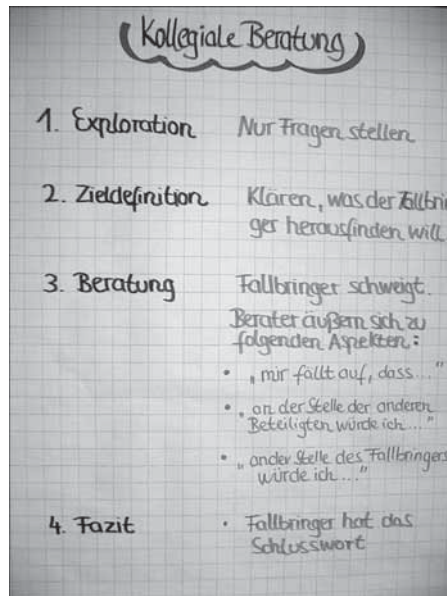 Kollegiale Beratung
1. Exploration Nur Fragen stellen
2. Zieldefinition Klären, was der Fallbrin
ger herausfinden will
3. Beratung Fallbringer schweigt.
Berater äußern sich zu
folgenden Aspekten:
• „mir fällt auf, dass..."
• „an der Stelle der anderen
Beteiligten würde ich..."
• „an der Stelle des Fallbringers
würde ich..."
4. Fazit • Fallbringer hat das
Schlusswort